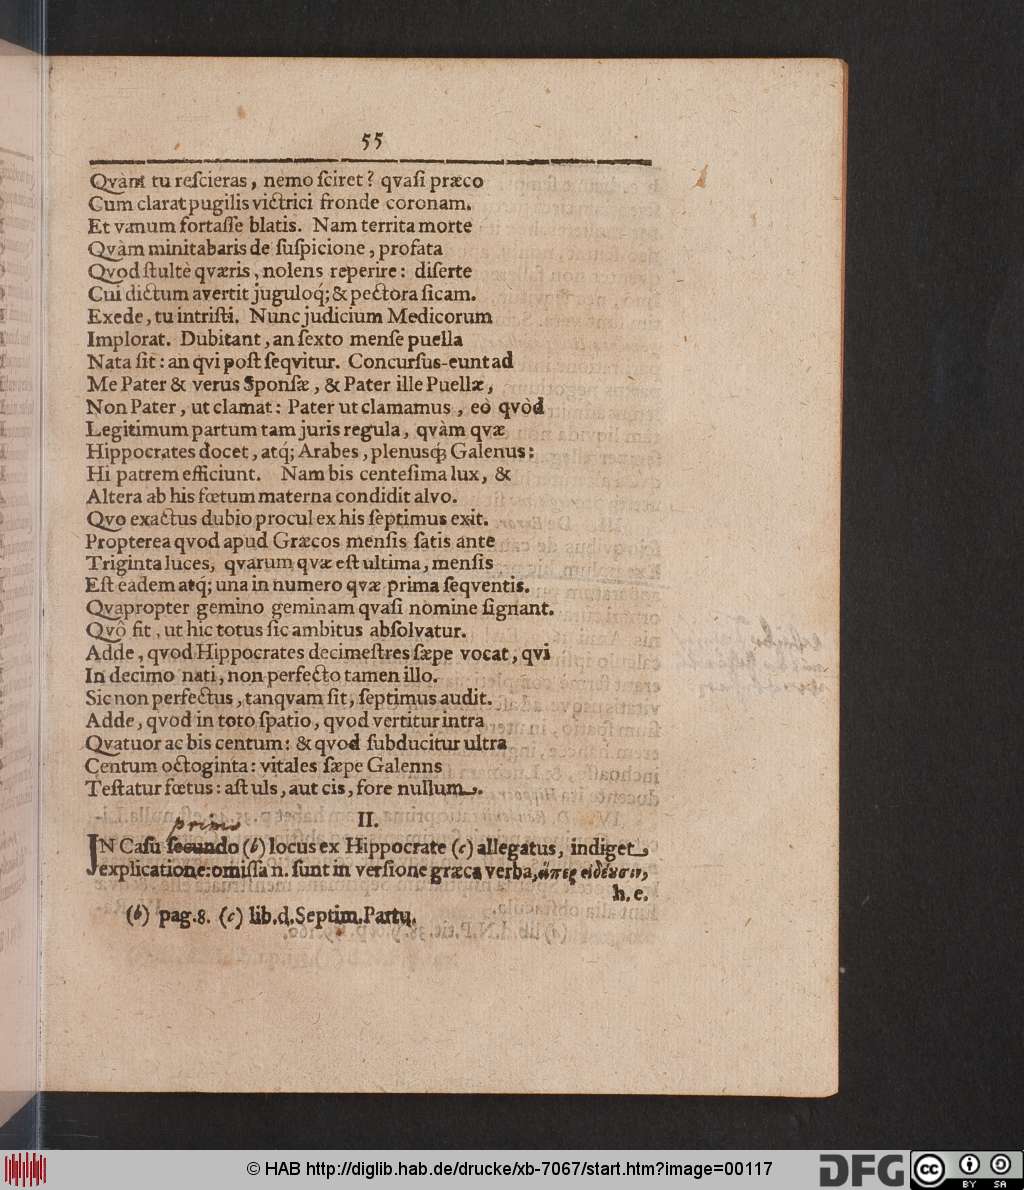 55
Qvàm tu reſcieras, nemo ſciret? qvaſi præco
Cum clarat pugilis victrici fronde coronam.
Et vanum fortaſſe blatis. Nam territa morte
Qvàm minitabaris de ſuſpicione, profata
Qvod ſtultè qværis, nolens reperire: diſerte
Cui dictum avertit juguloq́; & pectora ſicam.
Exede, tu intriſti. Nunc judicium Medicorum
Implorat. Dubitant, an ſexto menſe puella
Nata ſit: an qvi poſt ſeqvitur. Concurſus-eunt ad
Me Pater & verus Sponſæ, & Pater ille Puellæ,
Non Pater, ut clamat: Pater ut clamamus, eò qvòd
Legitimum partum tam juris regula, qvàm qvæ
Hippocrates docet, atq́; Arabes, plenusq́; Galenus:
Hi patrem efficiunt. Nam bis centeſima lux, &
Altera ab his fœtum materna condidit alvo.
Qvo exactus dubio procul ex his ſeptimus exit.
Propterea qvod apud Græcos menſis ſatis ante
Triginta luces, qvarum qvæ eſt ultima, menſis
Eſt eadem atq́; una in numero qvæ prima ſeqventis.
Qvapropter gemino geminam qvaſi nomine ſignant.
Qvô fit, ut hic totus ſic ambitus abſolvatur.
Adde, qvod Hippocrates decimeſtres ſæpe vocat, qvi
In decimo nati, non perfecto tamen illo.
Sic non perfectus, tanqvam ſit, ſeptimus audit.
Adde, qvod in toto ſpatio, qvod vertitur intra
Qvatuor ac bis centum: & qvod ſubducitur ultra
Centum octoginta: vitales ſæpe Galenns
Teſtatur fœtus: aſt uls, aut cis, fore nullum.
II.
primo
IN Caſu ſecundo (b) locus ex Hippocrate (c) allegatus, indiget
explicatione: omiſſa n. ſunt in verſione græca verba, ἅπερ εἰδέωσιν,
h. e.
(b) pag. 8. (c) lib. d. Septim. Partu.
© HAB http://diglib.hab.de/drucke/xb-7067/start.htm?image=00117
DFG
cc
BY SA